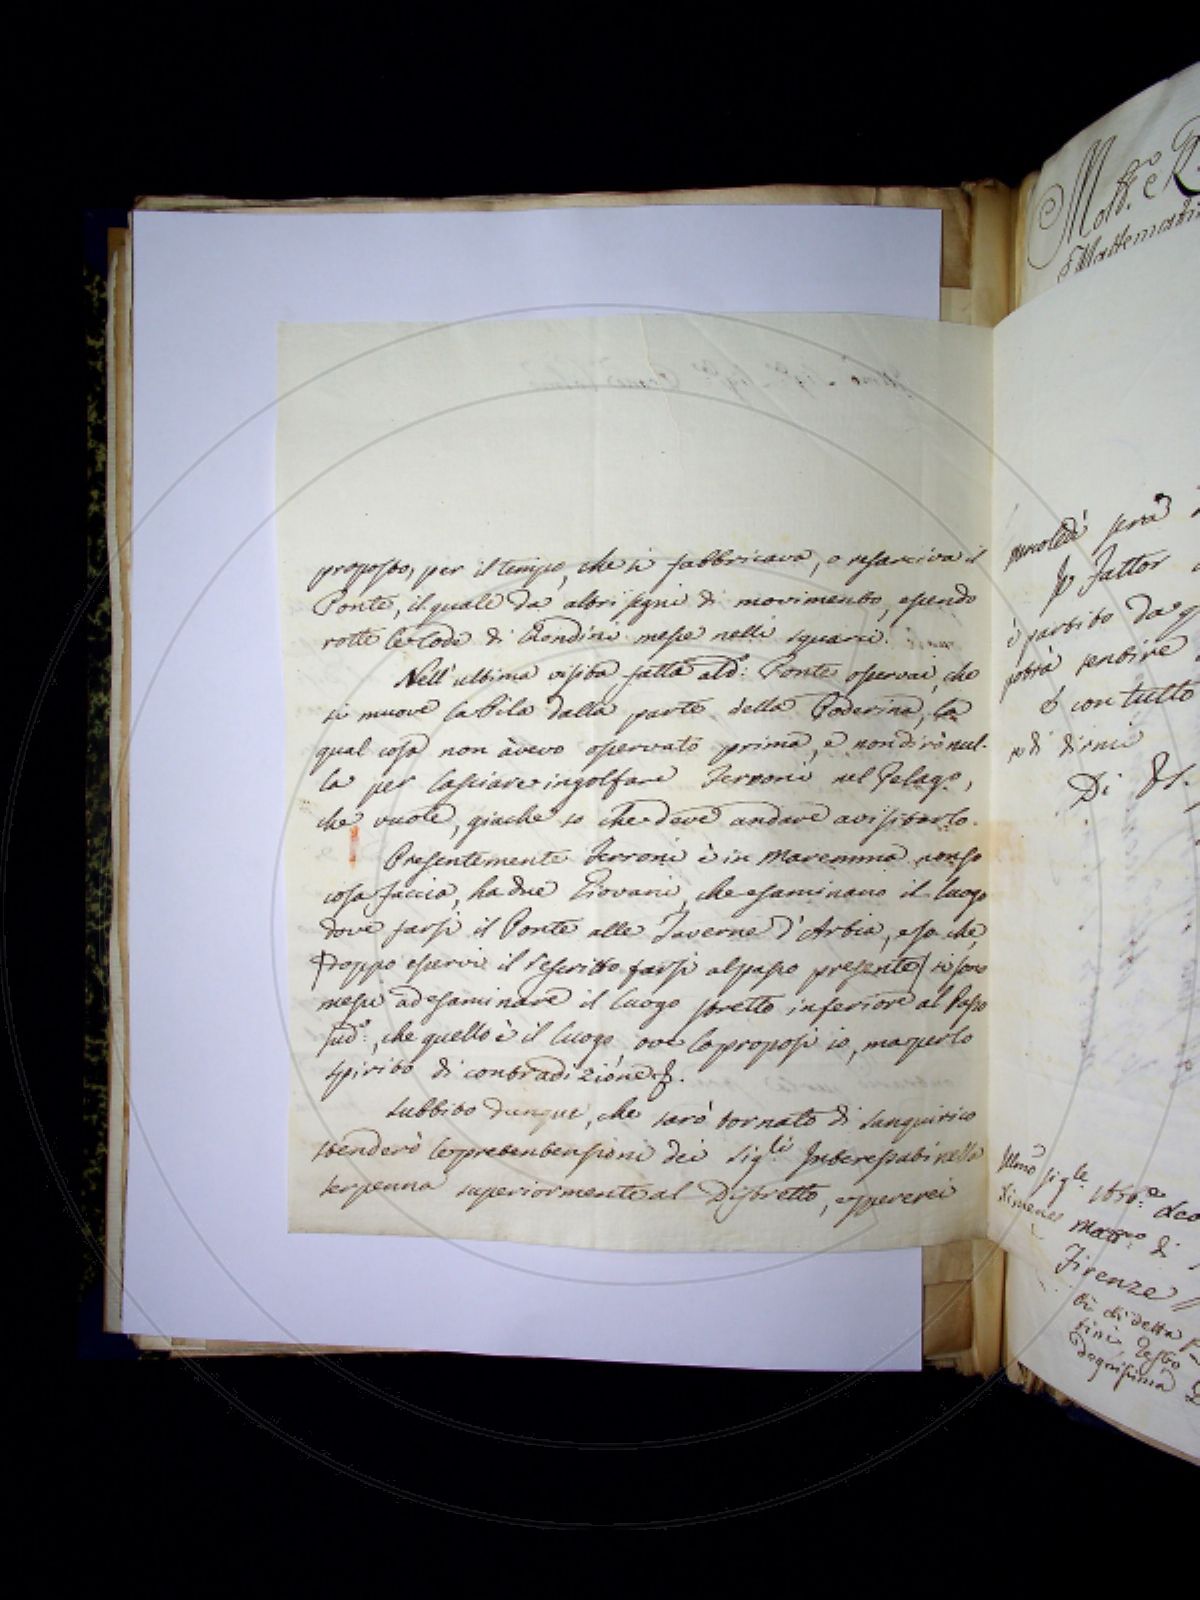 proposto, per il tempo, che si fabbricava, o resarciva il
Ponte, il quale da altri segni di movimento, essendo
rotte le Code di Rondini messe nelli squarci.
Nell'ultima visita fatta al d.º Ponte osservai, che
si muove la Pila dalla parte della Poderina, la
qual cosa non avevo osservato prima, e non dirò nul-
la per lasciare ingolfare Ferroni nel Pelago,
che vuole, giache so che deve andare a visitarlo.
Presentemente Ferroni è in Maremma non so
cosa faccia, ha due Giovani, che esaminano il luogo
dove farsi il Ponte alle Taverne d'Arbia, e so che
(doppo esservi il rescritto farsi al passo presente) si sono
messi ad esaminare il luogo stretto inferiore al Passo
sud.º, che quello è il luogo ove lo proposi io, ma per lo
spirito di contradizione &.
Subbito dunque, che sarò tornato di Sanquirico
stenderò le pretentensioni dei Sig.li Interessati nella
serpenna superiormente al Distretto, e
Molt.e R.
Mattematic
mercoledì sera
Fattor
è partito da q
potrà sentire
E con tutto
di dirmi
Di V.S.
Illmo Sig.le
Ximenes
Matt.co di
Firenze
di detta
degnissima